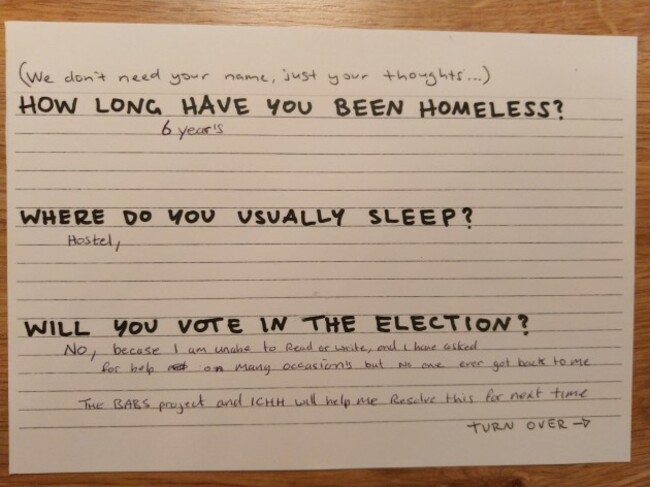 (We don't need your name, just your thoughts...)
HOW LONG HAVE YOU BEEN HOMELESS?
6 year's
WHERE DO YOU USUALLY SLEEP?
Hostel,
WILL YOU VOTE IN THE ELECTION?
No, becose I am unabe to Read or write, and i have asked
for help on many occasion's but No one ever got back to me
The BABS project and ICHH will help me Resolve this for next time
TURN OVER →